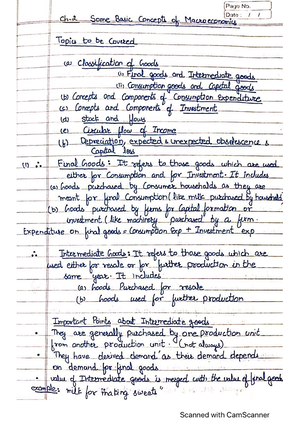 Page No.
Date : / /
Ch-2 Some Basic Concepts of Macroeconomics
Topics to be Covered
(a) Classification of Goods
(i) Final goods and Intermediate goods
(ii) Consumption goods and Capital goods
(b) Concepts and Components of Consumption Expenditure
(c) Concepts and Components of Investment
(d) Stock and flows
(e) Circular flow of Income
(f) Depreciation, expected & unexpected obsolescence &
Capital loss
(1) ∴ Final Goods: It refers to those goods which are used
either for Consumption and for Investment. It Includes
(a) Goods purchased by Consumer households as they are
meant for final Consumption (like milk purchased by households)
(b) Goods purchased by firms for Capital formation or
investment (like machinery purchased by a firm.
Expenditure on final goods = Consumption Exp + Investment exp
∴ Intermediate Goods: It refers to those goods which are
used either for resale or for further production in the
same year. It Includes
(a) Goods Purchased for resale
(b) Goods used for further production
Important Points about Intermediate goods
• They are generally purchased by one production unit
from another production unit. (not always)
• They have derived demand as their demand depends
on demand for final goods
• value of Intermediate goods is merged with the value of final goods
example: milk for making sweets"
Scanned with CamScanner